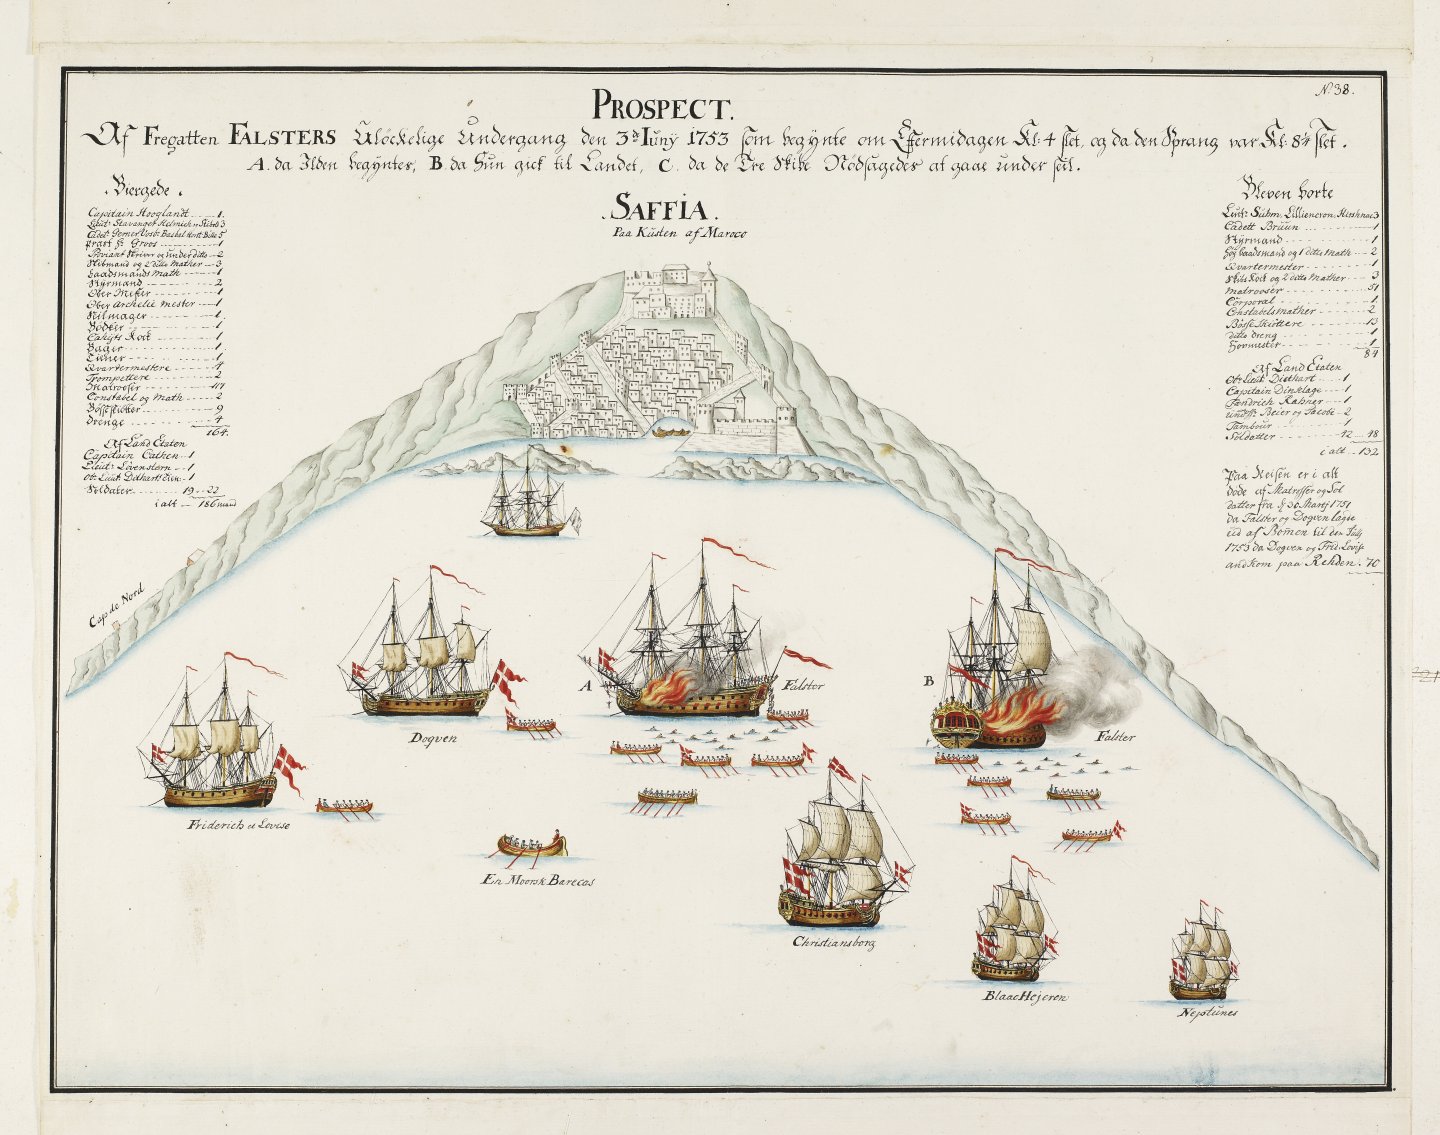 N.38.
PROSPECT.
Af Fregatten FALSTERS Uløckelige Undergang den 3de Iunÿ 1753 som begÿnte om Efftermidagen Kl: 4 slet, og da den Sprang var Kl: 8¼ slet.
A. da Ilden begÿntes, B. da Hun gick til Landet, C. da de Tre Skibe Nødsagedes at gaae under seil.
SAFFIA.
Paa Küsten af Maroco
Biergede.
Capitain Hooglandt 1.
Groos 1
Proviant Skriver og under ditto 2
Skibmand og 2 ditto Mather 3
baadsmands Math 1
Stÿrmand 2
Ober Mester 1
Ober Archelie Mester 1
Seilmager 1.
Bödker 1
Cahÿts Kock 1
Bager 1.
1
Qvartermestere 4
Trompettere 2
Matroeser 117
Constabel og Math 2
Bösseskötter 9
Drenge 4
164.
Af Land Etaten
Capitain Cathen 1
Lieut: Lövenstern 1
1
Soldater 19 22
i alt 186 mand
Bleven borte
Lieut: Suhm, Lilliencron, 3
Cadett Bruun 1
Stÿrmand 1
Høÿbaadsmand og 1 ditto Math 2
Qvartermester 1
Skibs Kock og 2 ditto Mather 3
Matrooser 51
Corporal 1
Constabels mather 2
Bösse Skötter 13
ditto Dreng 1
Hovmester 1
84
Af Land Etaten
Ob: Lieut. Diethart 1
Capitain Dinklage 1
Fændrich Rahner 1
undof: Beier og Jacobe 2
Tambour 1
Soldatter 42 48
i alt 132
Paa Reisen er i alt
döde af Matrosser og Sol
datter fra d 30 Martÿ 1751
da Falster og Dogven lagde
ud af Bomen til den Julÿ
1753 da Dogven og Frid: Lovise
and kom paa Rehden. 70
Cap de Nord
A
Falster
B
Falster
Dogven
Friderich et Lovise
En Moorsk Barecas
Christiansborg
Blaae Hejeren
Neptunes